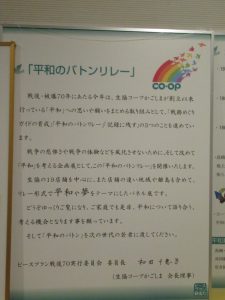 「平和のバトンリレー」
co·op
戦後・被爆70年にあたる今年は、生協コープかごしまが創立以来
行っている「平和」への思いや願いをまとめる取り組みとして、「戦跡めぐり
ガイドの育成」「平和のバトンリレー」「記録に残す」の3つのことを進めてい
ます。
戦争の危惧さや戦争の体験などを風化させないために、そして改めて
「平和」を考える企画展としてこの「平和のバトンリレー」を開催いたします。
生協の19店舗を中心に、また店舗の遠い地域や離島も含めて、
リレー形式で平和の夢をテーマにしたパネル展です。
どうぞゆっくりご覧になり、ご家庭でも是非、平和について語り合う、
考える機会となります事を願っています。
そして「平和のバトン」を次の世代の若者に渡してください。
ピースプラン戦後70実行委員会 委員長 和田
(生協コープかごしま 会長理事)